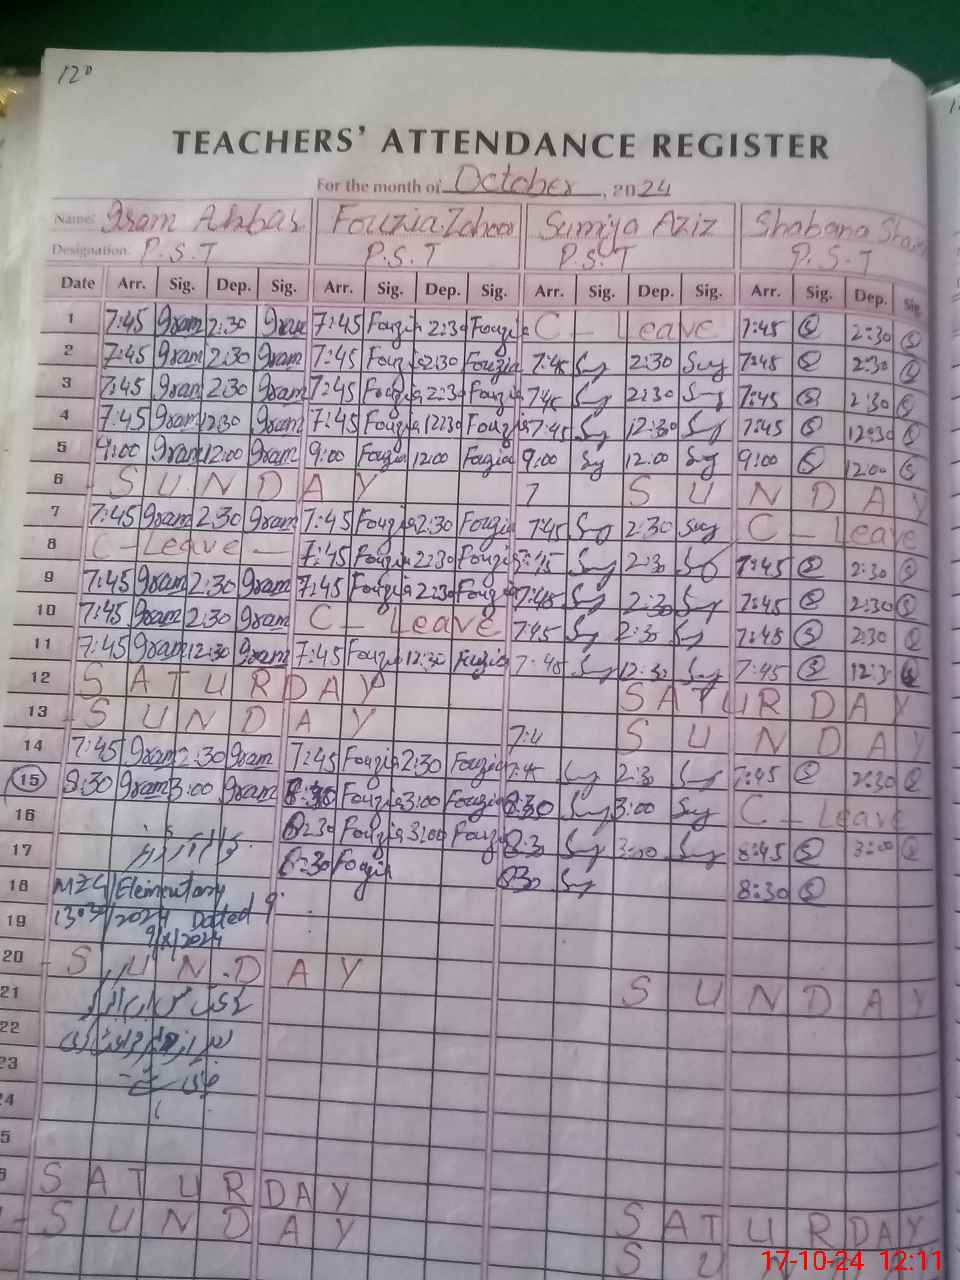 12
TEACHERS' ATTENDANCE REGISTER
For the month of October, 2024
Name: Iram Abbas Fouzia Zahoor Sumiya Aziz Shabana
Designation. P.S.T P.S.T P.S.T P.S.T
Date Arr. Sig. Dep. Sig. Arr. Sig. Dep. Sig. Arr. Sig. Dep. Sig. Arr. Sig. Dep. Sig.
1 7:45 Iram 2:30 Iram 7:45 Fouzia 2:30 Fouzia C - Leave 7:45 S 2:30 S
2 7:45 Iram 2:30 Iram 7:45 Fouzia 2:30 Fouzia 7:45 Sug 2:30 Sug 7:45 S 2:30 S
3 7:45 Iram 2:30 Iram 7:45 Fouzia 2:30 Fouzia 7:45 2:30 7:45 S 2:30 S
4 7:45 Iram 12:30 Iram 7:45 Fouzia 12:30 Fouzia 7:45 12:30 7:45 S 12:30 S
5 9:00 Iram 12:00 Iram 9:00 Fouzia 12:00 Fouzia 9:00 Sy 12:00 Sy 9:00 S 12:00 S
6 SUNDAY 7 SUNDAY
7 7:45 Iram 2:30 Iram 7:45 Fouzia 2:30 Fouzia 7:45 2:30 Suy C - Leave
8 C - Leave - 7:45 Fouzia 2:30 Fouzia 7:45 2:30 7:45 S 2:30 S
9 7:45 Iram 2:30 Iram 7:45 Fouzia 2:30 Fouzia 7:45 2:30 7:45 S 2:30 S
10 7:45 Iram 2:30 Iram C - Leave 7:45 2:30 7:45 S 2:30 S
11 7:45 Iram 12:30 Iram 7:45 Fouzia 12:30 Fouzia 7:45 12:30 7:45 S 12:3
12 SATURDAY SATURDAY
13 - SUNDAY 7:4 SUNDAY
14 7:45 Iram 2:30 Iram 7:45 Fouzia 2:30 Fouzia 7:45 2:30 7:45 S 2:30 S
15 8:30 Iram 3:00 Iram 8:30 Fouzia 3:00 Fouzia 8:30 3:00 C - Leave
16 8:30 Fouzia 3:00 Fouzia 8:30 3:00 8:45 S 3:00 S
17 8:30 Fouzia 8:30 8:30 S
18 Elementary
19 /2024 Dated 9
9/X/2024
20 - SUNDAY
21 SUNDAY
22
23
24
25
SATURDAY SATURDAY
- SUNDAY
17-10-24 12:11